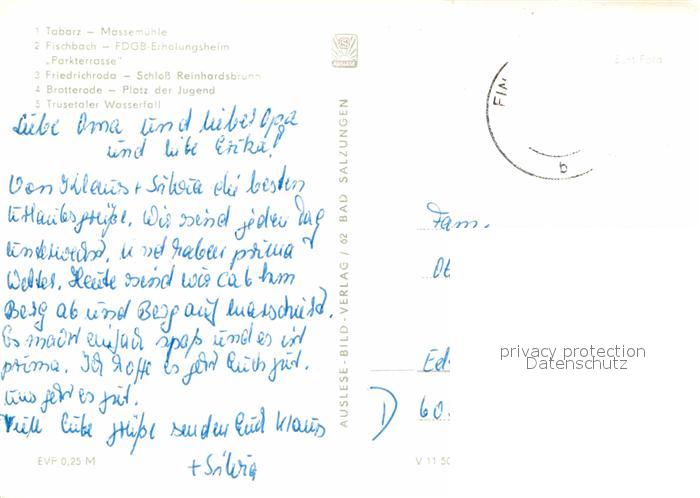 1 Tabarz – Massemühle
2 Fischbach – FDGB-Erholungsheim
„Parkterrasse"
3 Friedrichroda – Schloß Reinhardsbrunn
4 Brotterode – Platz der Jugend
5 Trusetaler Wasserfall
Liebe Oma und lieber Opa
und liebe Erika!
Von Klaus + Silvia die besten
Urlaubsgrüße. Wir sind jeden Tag
unterwegs, und haben prima
Wetter. Heute sind wir ca 6 km
Berg ab und Berg auf marschiert.
Es macht einfach spaß und es ist
prima. Ich hoffe es geht Euch gut.
Uns geht es gut.
Viele liebe Grüße senden Euch Klaus
+ Silvia
EVP 0,25 M
AUSLESE-BILD-VERLAG / 62 BAD SALZUNGEN
V 11 50
Echt Foto
FIN
b
Fam.
Ed
D
60.
privacy protection
Datenschutz